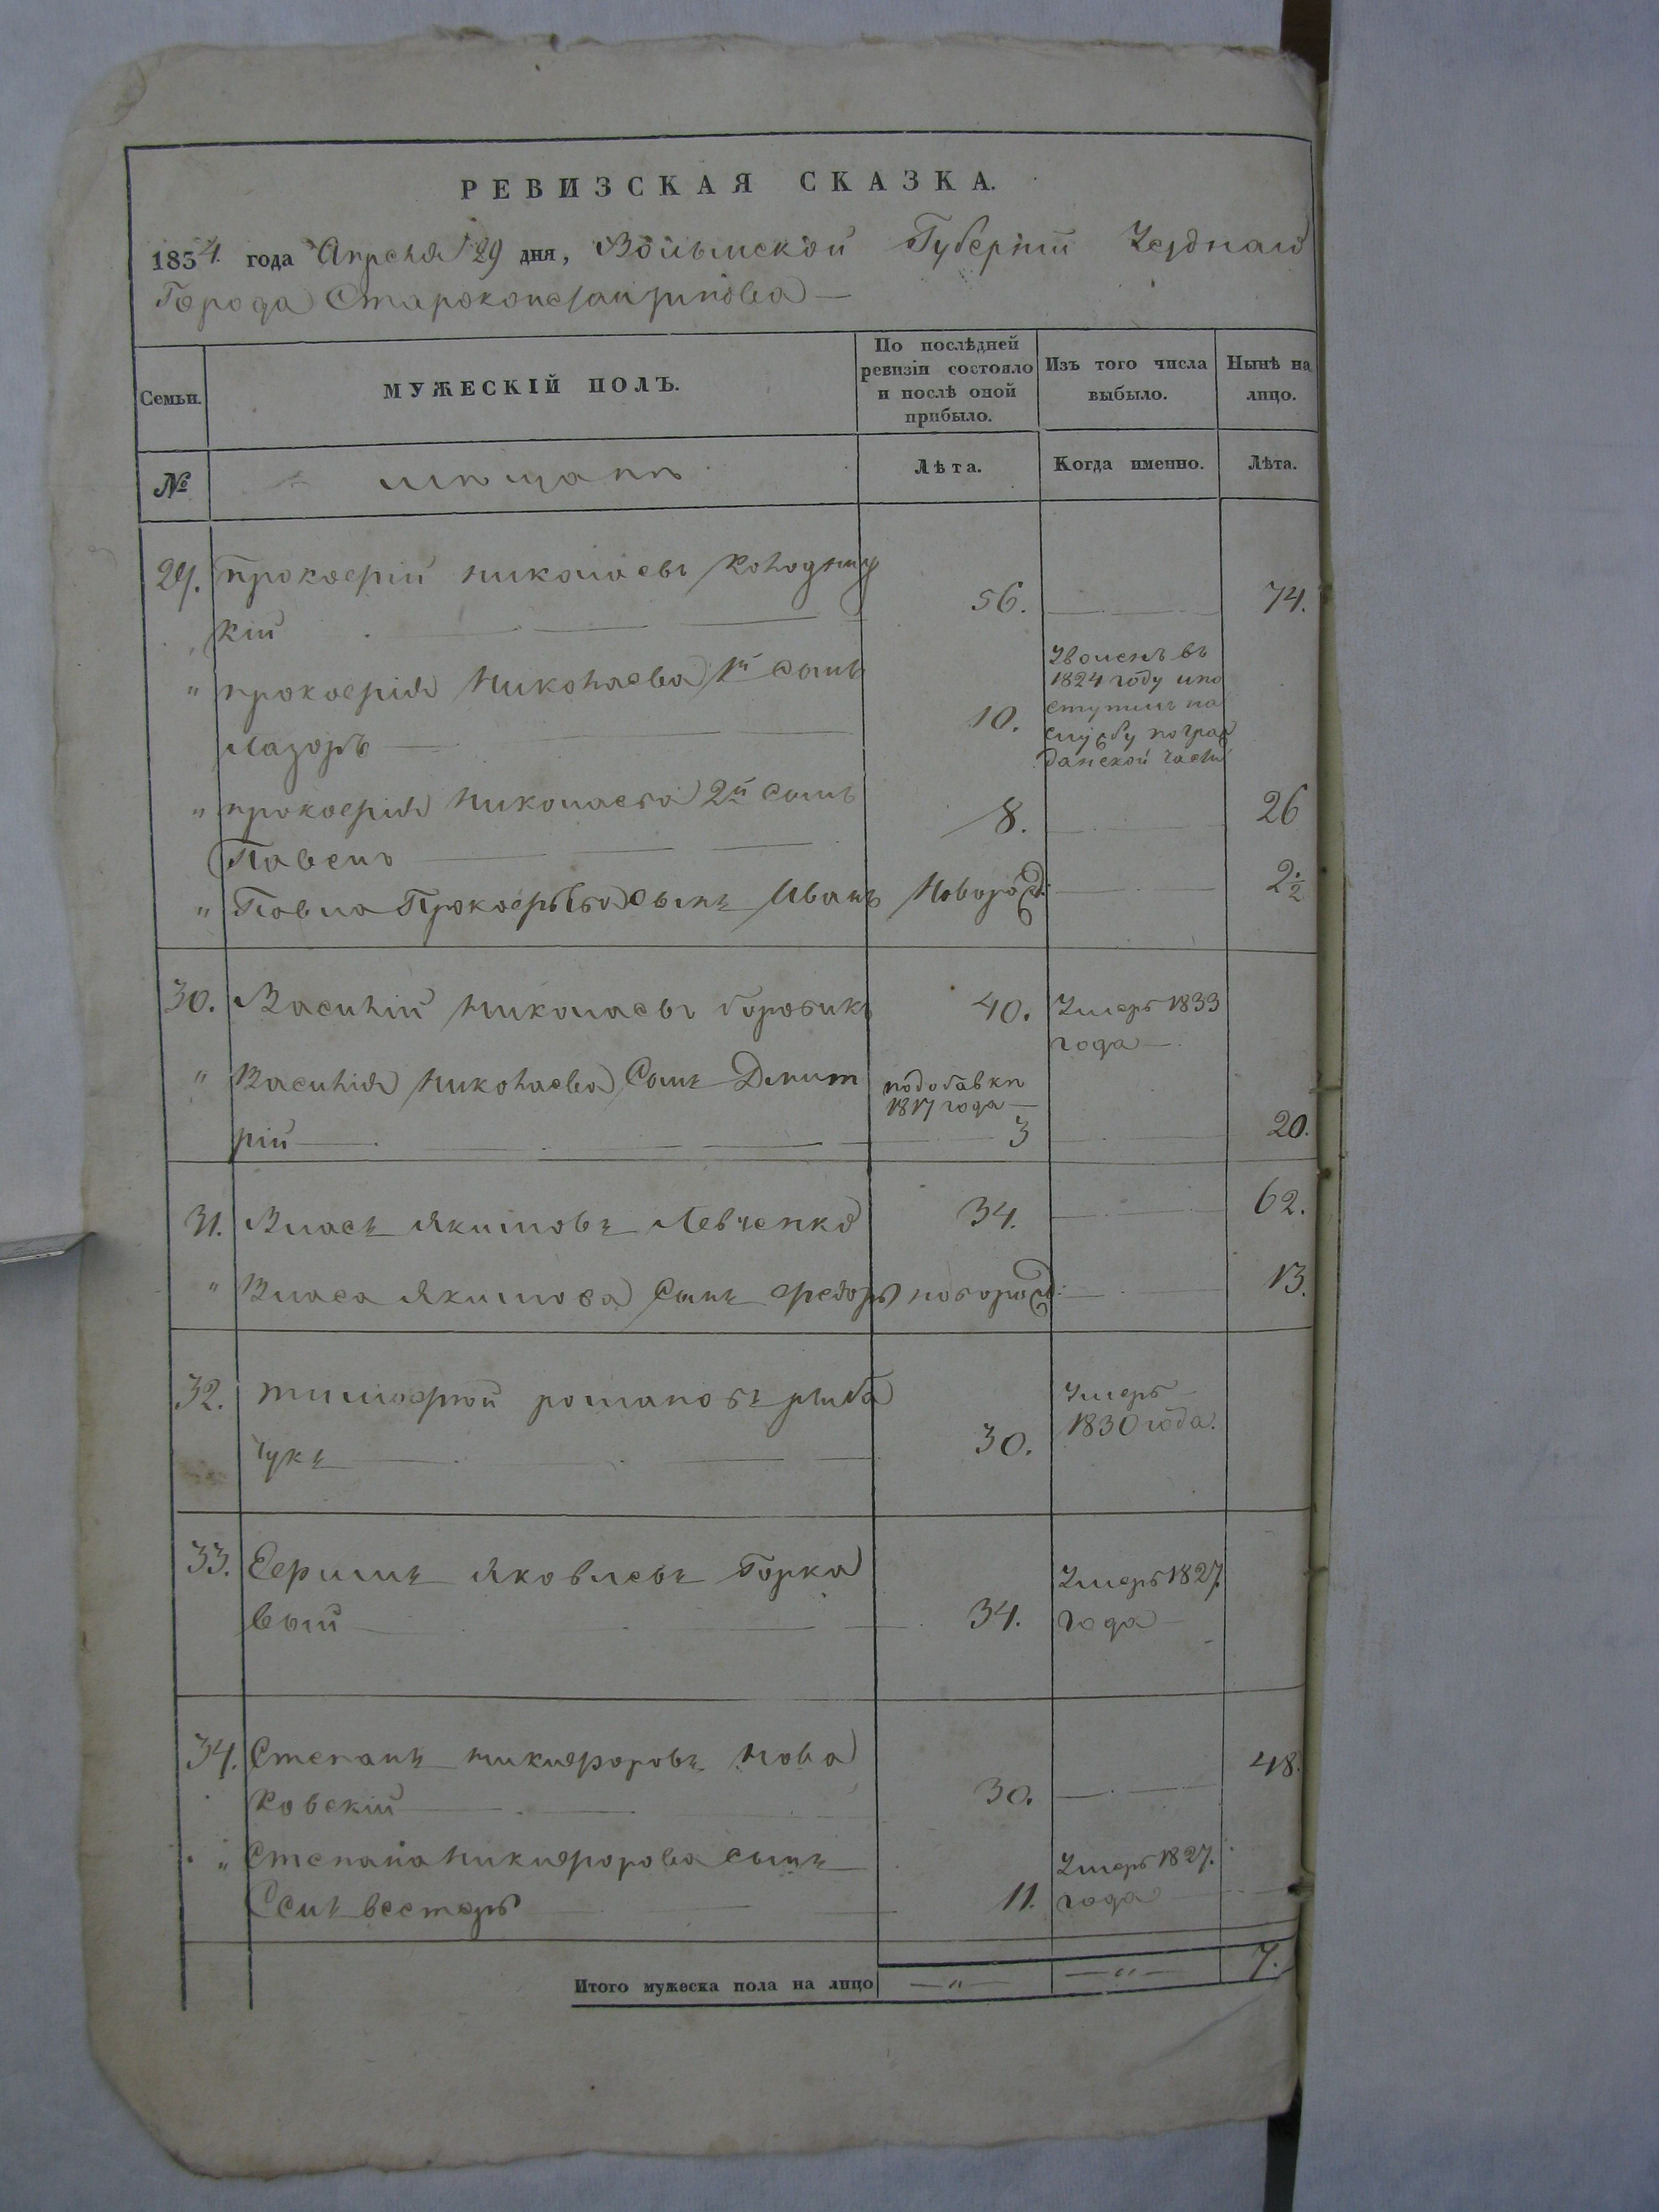 РЕВИЗСКАЯ СКАЗКА.
1834 года Апреля 29 дня, Волынской Губерніи Уезднаго
Города Староконстантинова —
Семьи.
МУЖЕСКІЙ ПОЛЪ.
По послѣдней
ревизіи состояло
и послѣ оной
прибыло.
Изъ того числа
выбыло.
Нынѣ на
лицо.
№
мѣщанѣ
Лѣта.
Когда именно.
Лѣта.
29. Прокофій Николаевъ
кій 56. 74.
" Прокофія Николаева 1й сынъ
Лазоръ 10.
Уволенъ въ
1824 году и по
ступилъ на
службу по граж
данской части
" Прокофія Николаева 2й сынъ
Павелъ 8. 26
" Павла Прокофьева сынъ Иванъ Новорожд: 2½
30. Василій Николаевъ Боровикъ 40. Умеръ 1833
года
" Василія Николаева сынъ Дмит
рій
подобавки
1817 года
3 20.
31. Власъ Якимовъ Левченко 34. 62.
" Власа Якимова сынъ Федоръ новорожд: 13.
32. Тимофей Романовъ Рыба
чукъ 30.
Умеръ
1830 года.
33. Ефимъ Яковлевъ Горка
вый 34.
Умеръ 1827
года
34. Степанъ Никифоровъ Нова
ковскій 30. 48.
" Степана Никифорова сынъ
Селивестеръ 11.
Умеръ 1827.
года
Итого мужеска пола на лицо — " — — " — 7.